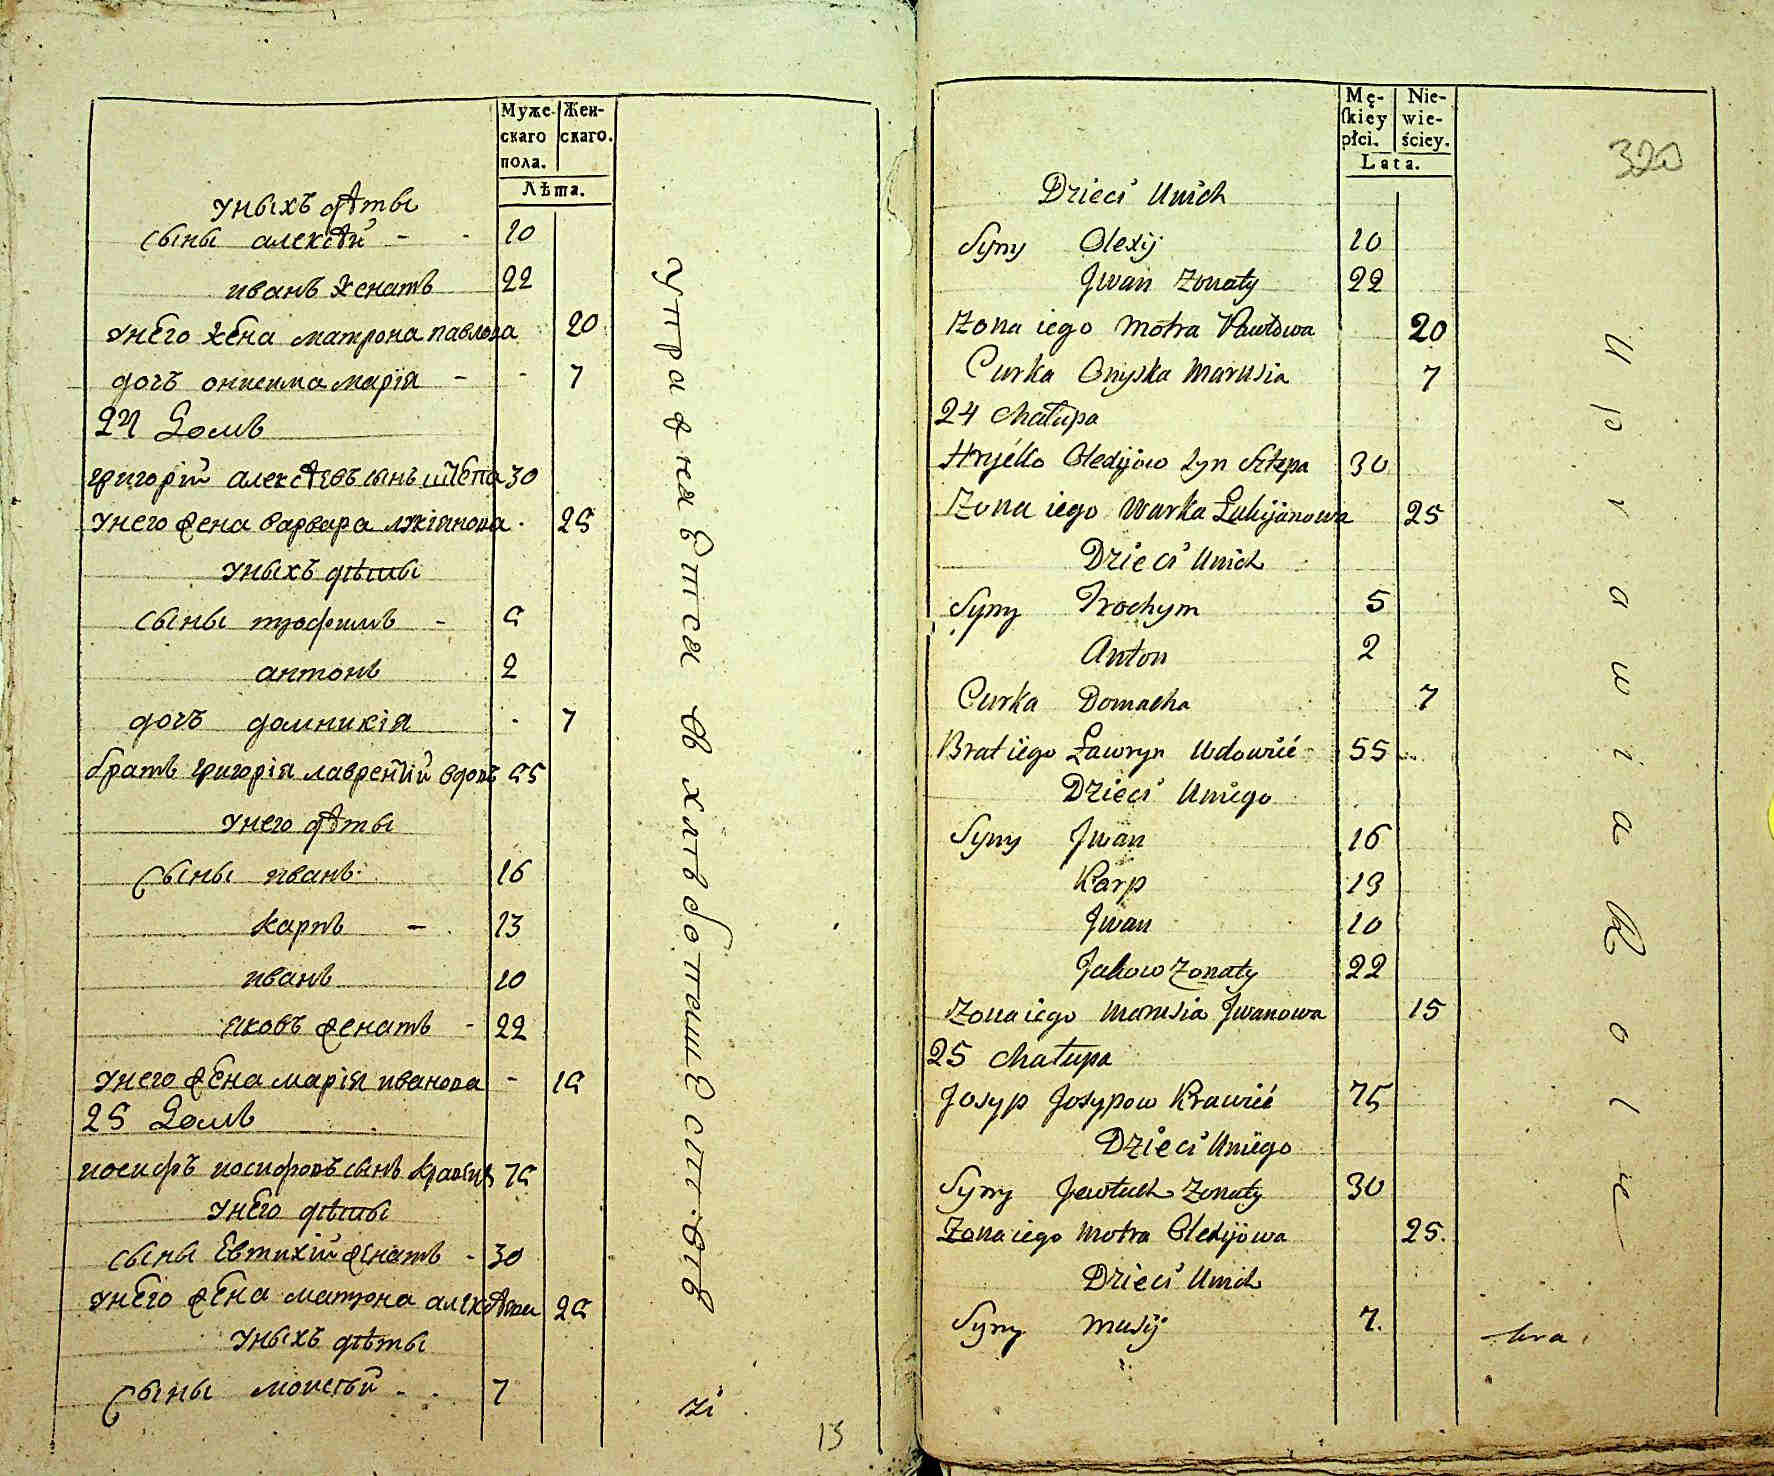 Муже-
скаго
пола.
Жен-
скаго.
Лѣта.
Уныхъ дѣты
Сыны алексѣй - - 10
иванъ женатъ 22
унего жена матрона павлова 20
дочъ онисима марія - - 7
24 Домъ
григорій алексѣевъ сынъ щепа 30
унего жена варвара лукіянова 25
уныхъ дѣты
сыны трофимъ - 5
антонъ 2
дочъ домникія 7
братъ григорія лаврентій вдовъ 55
унего дѣты
Сыны иванъ 16
карпъ - 13
иванъ 10
яковъ женатъ - 22
унего жена марія иванова - 15
25 Домъ
иосифъ иосифовъ сынъ кравецъ 75
унего дѣты
сыны Евтихій женатъ - 30
унего жена матрона алексѣева 25
уныхъ дѣты
Сыны моисей - - 7
упражняется в хлебопашестве
13
Mę-
skiey
płci.
Nie-
wie-
ściey.
Lata.
320
Dzieci Unich
Syny Olexij 10
Jwan Zonaty 22
Zona iego Motra Pawłowa 20
Curka Onyska Marusia 7
24 Chałupa
Hryćko Olexijow Syn Szczepa 30
Zona iego Warka Łukijanowa 25
Dzieci Unich
Syny Trochym 5
Anton 2
Curka Domacha 7
Brat iego Ławryn Wdowiec 55
Dzieci Uniego
Syny Jwan 16
Karp 13
Jwan 10
Jakow Zonaty 22
Zona iego Marusia Jwanowa 15
25 Chałupa
Josyp Josypow Krawiec 75
Dzieci Uniego
Syny Jewtuch Zonaty 30
Zona iego Motra Olexijowa 25.
Dzieci Unich
Syny Musij 7.
Uprawia Role